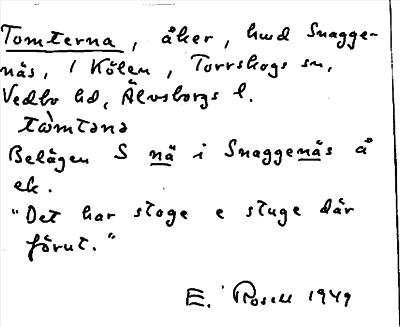 Tomterna, åker, hmd Snagge-
näs, 1 Kölen, Torrskogs sn,
Vedbo hd, Älvsborgs l.
tòmtənə
Belägen S nä i Snaggenäs å
ek.
"Det har stoge e stuge där
förut."
E. Rosell 1949